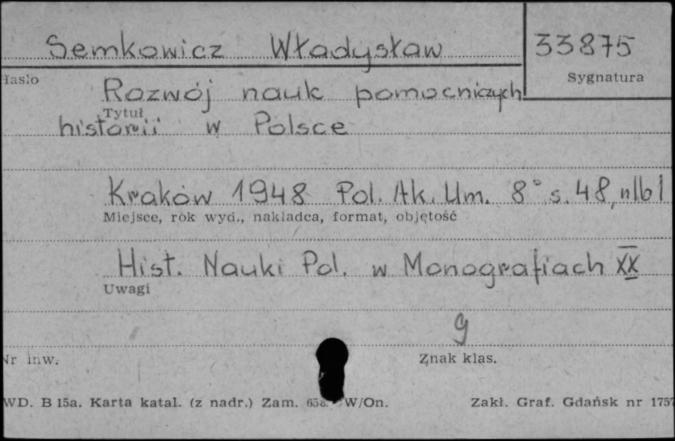 Semkowicz Władysław 33875
Hasło Sygnatura
Rozwój nauk pomocniczych
Tytuł
historii w Polsce
Kraków 1948 Pol. Ak. Um. 8° s. 48, nlb 1
Miejsce, rok wyd., nakładca, format, objętość
Hist. Nauki Pol. w Monografiach XX
Uwagi
9
Nr inw. Znak klas.
WD. B 15a. Karta katal. (z nadr.) Zam. W/On. Zakł. Graf. Gdańsk nr 1757